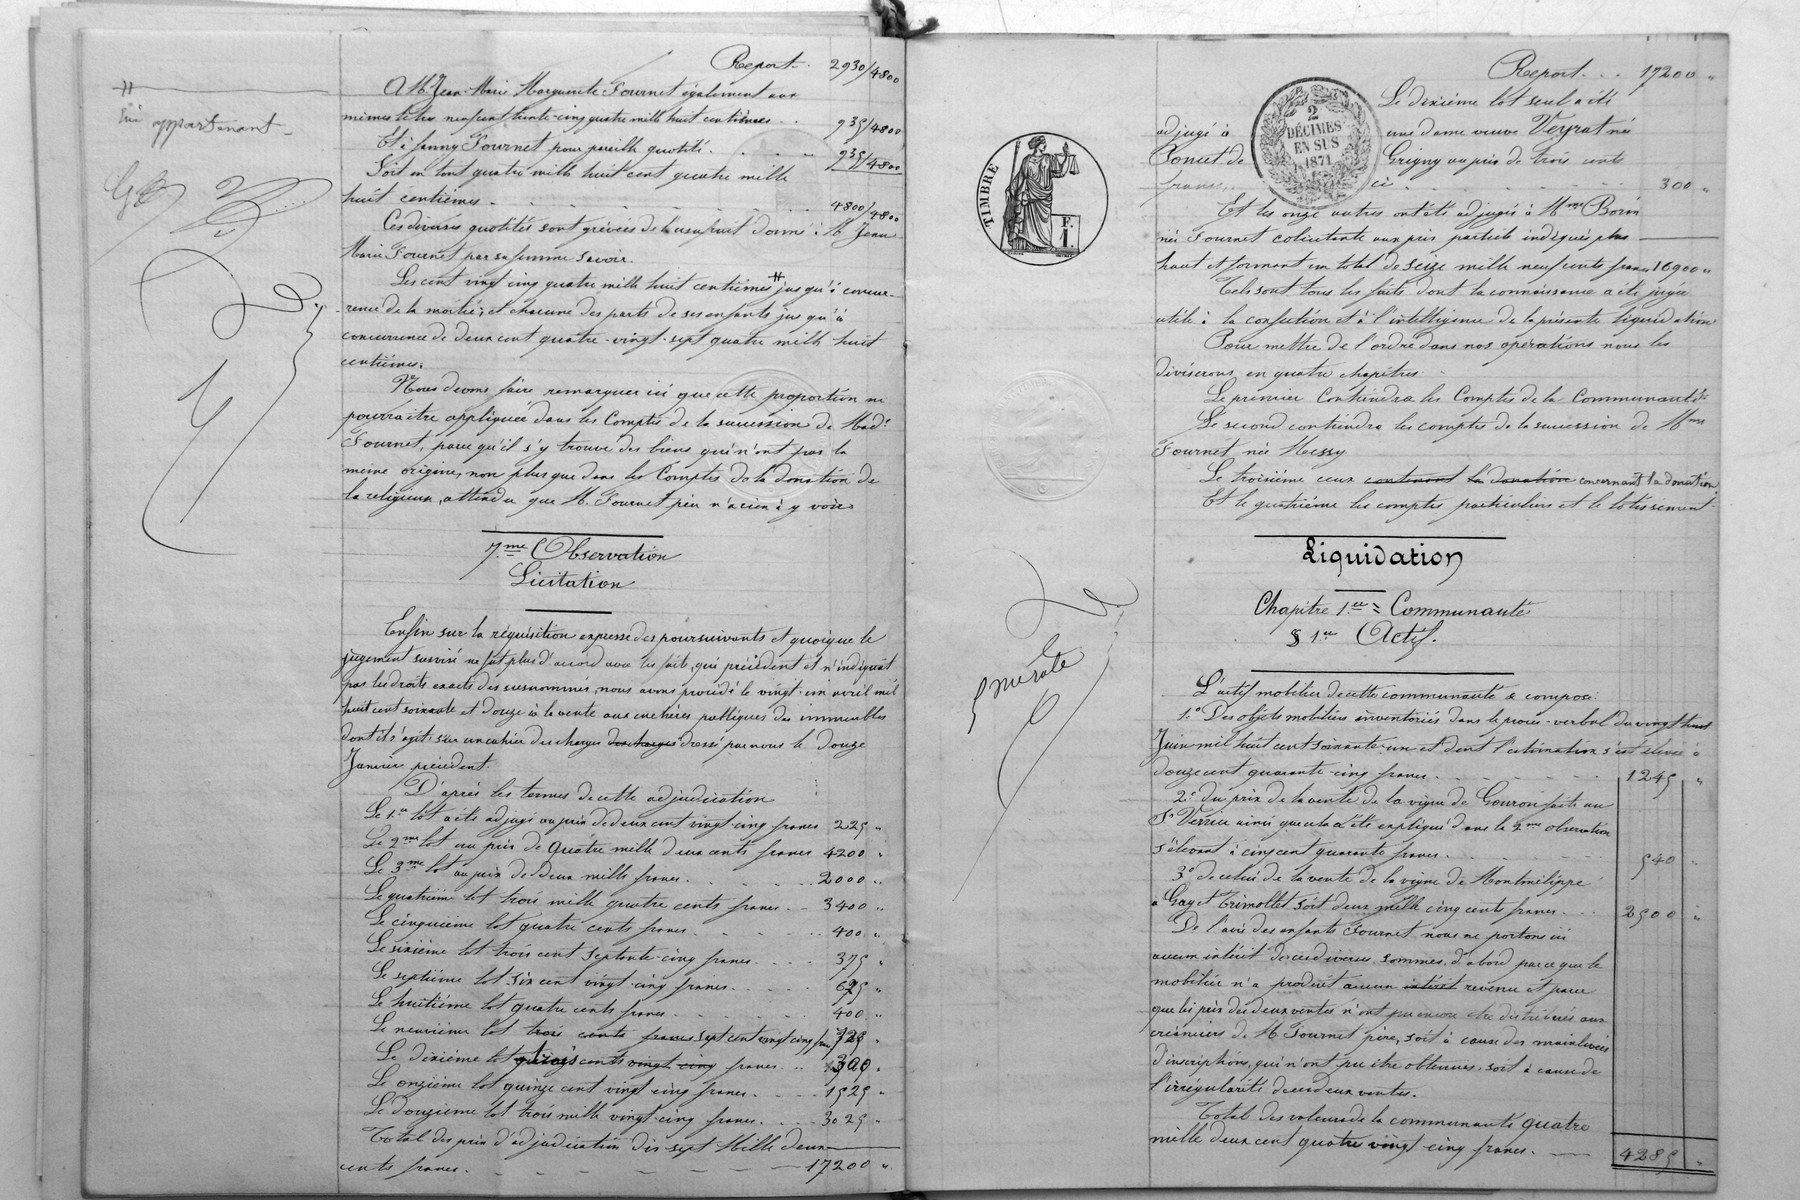 Report. 2930/4800
A M. Jean-Marie Marguerite Fournet également aux
mêmes titres neuf cent trente-cinq quatre mille huit centièmes .. 935/4800
Et à fanny Fournet pour pareille quotité. 935/4800
Soit en tout quatre mille huit cent quatre mille
huit centièmes. 4800/4800
Ces diverses quotités sont grévées de l'usufruit donné à M. Jean
Marie Fournet par sa femme savoir.
Les cent vingt cinq quatre mille huit centièmes # jusqu'à concur-
rence de la moitié; et chacune des parts de ses enfants jusqu'à
concurrence de deux cent quatre-vingt-sept quatre mille huit
centièmes.
#
lui appartenant
Nous devons faire remarquer ici que cette proportion ne
pourra être appliquée dans les Comptes de la succession de Made
Fournet, parce qu'il s'y trouve des biens qui n'ont pas la
même origine, non plus que dans les Comptes de la donation de
la religieuse, attendu que M. Fournet père n'a rien à y voir.
7.me Observation
Licitation
Enfin sur la réquisition expresse des poursuivants et quoique le
jugement susvisé ne fut plus d'accord avec les faits, qui précèdent et n'indiquât
pas les droits exacts des susnommés, nous avons procédé le vingt-un avril mil
huit cent soixante et douze à la vente aux enchères publiques des immeubles
dont il s'agit sur un cahier des charges des charges dressé par nous le douze
Janvier précédent.
D'après les termes de cette adjudication
Le 1.er lot a été adjugé au prix de deux cent vingt-cinq francs 225 "
Le 2.me lot au prix de Quatre mille deux cents francs 4200 "
Le 3.me lot au prix de deux mille francs. 2000 "
Le quatrième lot trois mille quatre cents francs 3400 "
Le cinquième lot quatre cents francs 400 "
Le sixième lot trois cent septante-cinq francs 375 "
Le septième lot six cent vingt-cinq francs. 625 "
Le huitième lot quatre cents francs. 400 "
Le neuvième lot trois cents francs sept cent vingt cinq frs 725 "
Le dixième lot trois cents vingt cinq francs 300 "
Le onzième lot quinze cent vingt-cinq francs. 1525 "
Le douzième lot trois mille vingt-cinq francs. 3025 "
Total des prix d'adjudication dix-sept Mille deux
cents francs. 17200 "
Report... 17200 "
Le dixième lot seul a été
adjugé à une dame veuve Veyrat née
Poncet de Grigny au prix de trois cents
francs, ci 300 "
2
DÉCIMES
EN SUS
1871
TIMBRE
F.
1.
Et les onze autres ont été adjugés à Mme Borin
née Fournet colicitante aux prix partiels indiqués plus
haut et formant un total de seize mille neuf cents francs 16900 "
Tels sont tous les faits dont la connaissance a été jugée
utile à la confection et à l'intelligence de la présente liquidation
Pour mettre de l'ordre dans nos opérations nous les
diviserons en quatre chapitres.
Le premier Contiendra les Comptes de la Communauté
Le second contiendra les comptes de la succession de Mme
Fournet née Messy
Le troisième ceux contenant la donation concernant la donation
Et le quatrième les comptes particuliers et le lotissement
Liquidation
Chapitre 1.er = Communauté
§ 1.er Actif.
L'actif mobilier de cette communauté se compose
1.° Des objets mobiliers inventoriés dans le procès-verbal du vingt huit
Juin mil huit cent soixante-un et dont l'estimation s'est élevée à
douze cent quarante-cinq francs. 1245 "
2.° du prix de la vente de la vigne de Gouron faite au
Sr Verrier ainsi que cela a été expliqué dans la 2.me observation
s'élevant à cinq cent quarante francs. 540 "
3.° de celui de la vente de la vigne de Montmélippe
à Gay et Trimollet soit deux mille cinq cents francs. 2500 "
De l'avis des enfants Fournet nous ne portons ici
aucun intérêt de ces diverses sommes, d'abord parce que le
mobilier n'a produit aucun intérêt revenu et parce
que les prix des deux ventes n'ont pu encore être distribués aux
créanciers de M. Fournet père, soit à cause des mainlevées
d'inscriptions, qui n'ont pu être obtenues, soit à cause de
l'irrégularité de ces deux ventes.
Total des valeurs de la communauté quatre
mille deux cent quatre vingt-cinq francs. 4285 "